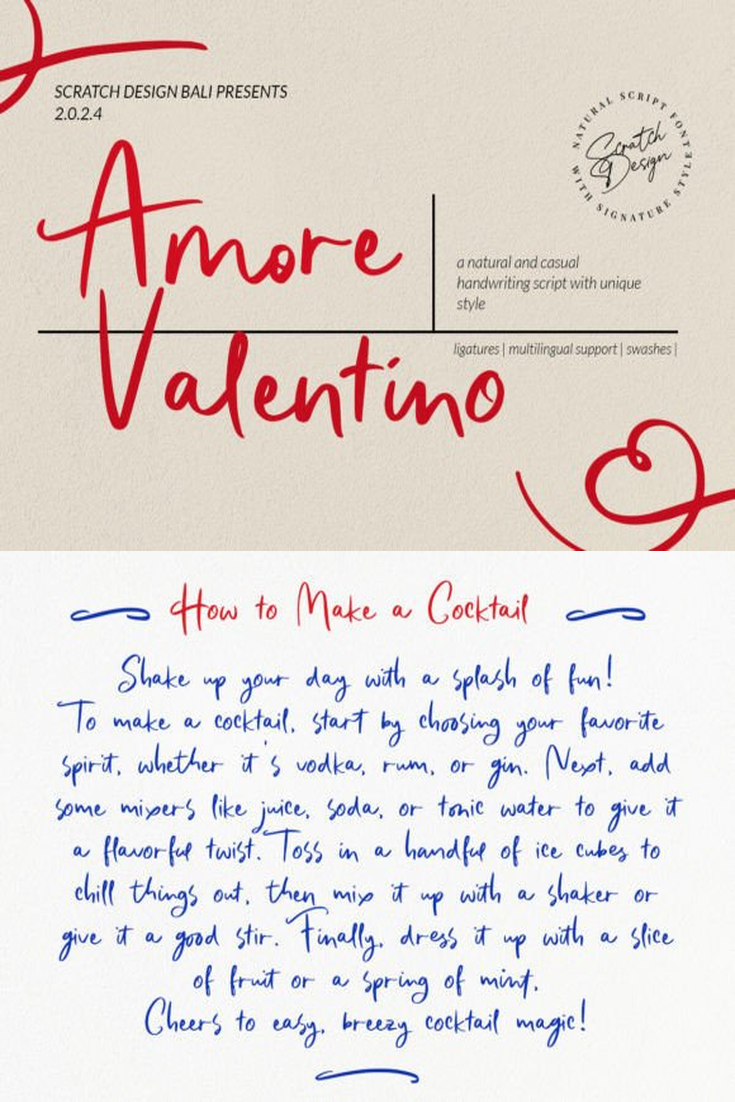 SCRATCH DESIGN BALI PRESENTS
2.0.2.4
NATURAL SCRIPT FONT
WITH SIGNATURE STYLE
Scratch
Design
Amore
Valentino
a natural and casual
handwriting script with unique
style
ligatures | multilingual support | swashes |
How to Make a Cocktail
Shake up your day with a splash of fun!
To make a cocktail, start by choosing your favorite
spirit, whether it's vodka, rum, or gin. Next, add
some mixers like juice, soda, or tonic water to give it
a flavorful twist. Toss in a handful of ice cubes to
chill things out, then mix it up with a shaker or
give it a good stir. Finally, dress it up with a slice
of fruit or a spring of mint.
Cheers to easy, breezy cocktail magic!